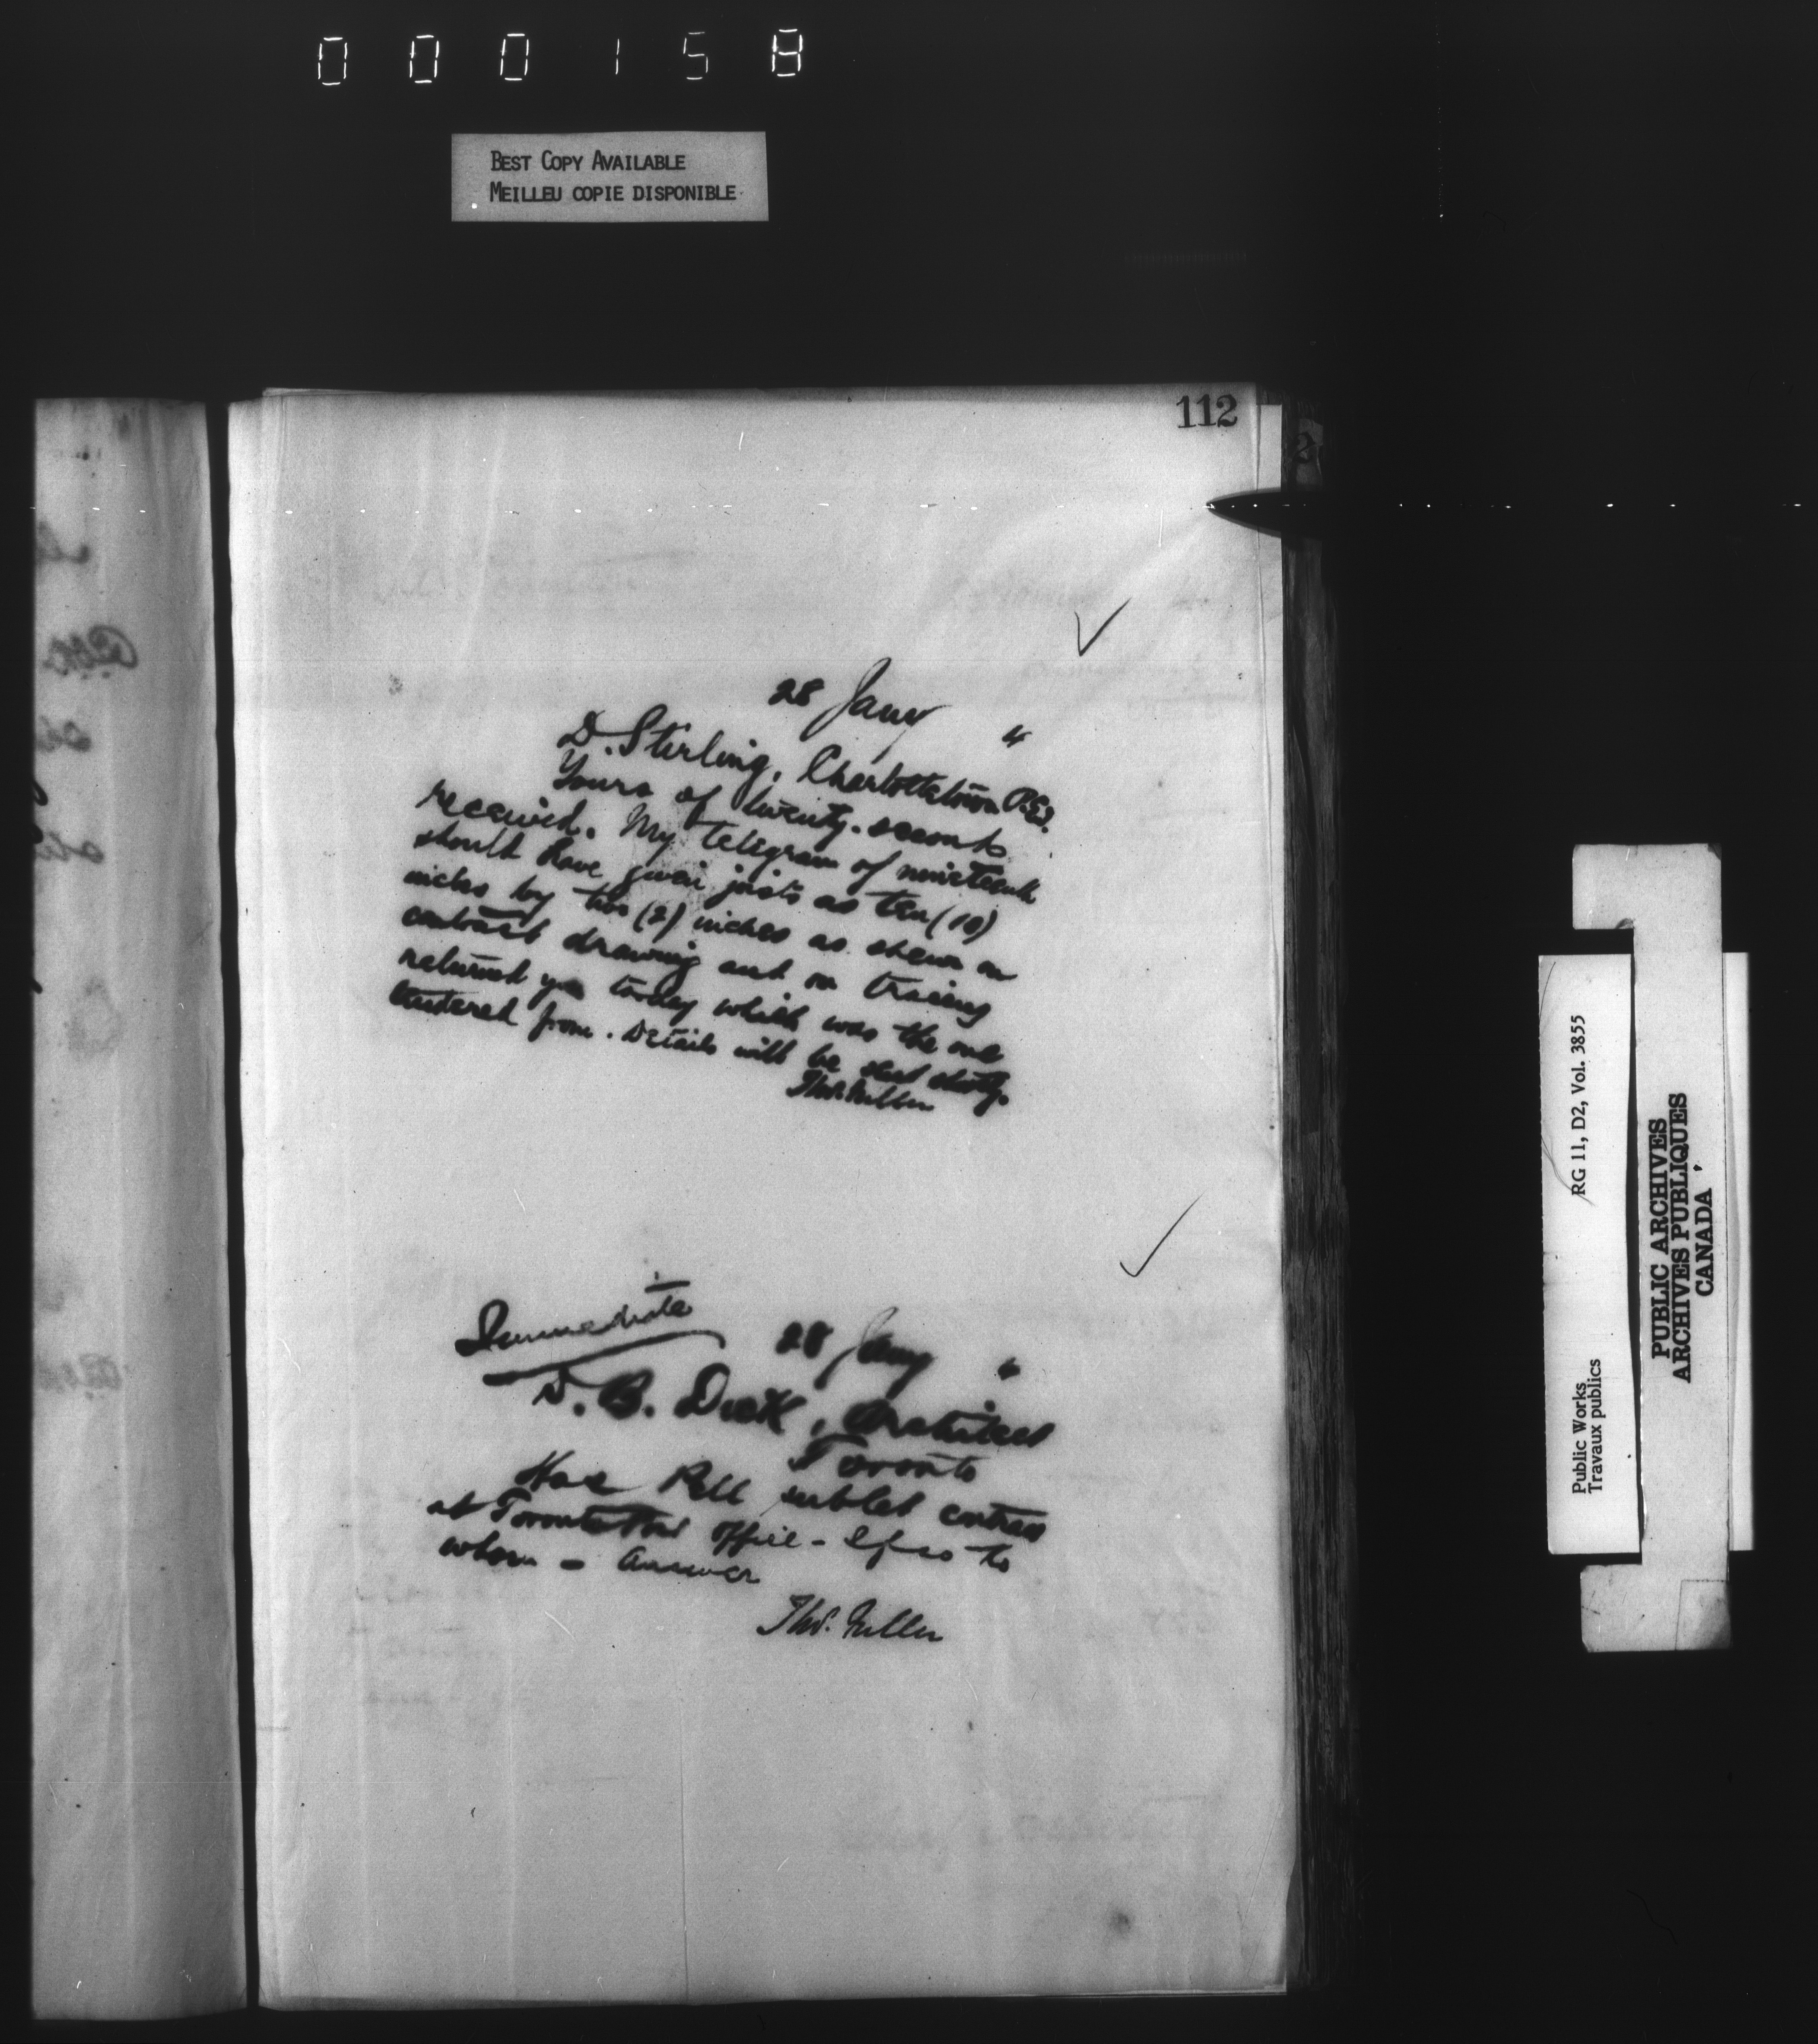 000158
BEST COPY AVAILABLE
MEILLEU COPIE DISPONIBLE
112
28 Jany 4
D. Sterling, Charlottetown P.E.I.
Yours of twenty-second
received. My telegram of nineteenth
should have given joists as ten (10)
inches by two (2) inches as shewn on
contract drawing and on tracing
returned you today which was the one
tendered from. Details will be sent shortly.
Thos. Fuller
Immediate
28 Jany
D. B. Dick, Architect
Toronto
Has Pell sublet contract
at Toronto Post Office - If so to
whom - Answer
Thos. Fuller
RG 11, D2, Vol. 3855
Public Works
Travaux publics
PUBLIC ARCHIVES
ARCHIVES PUBLIQUES
CANADA